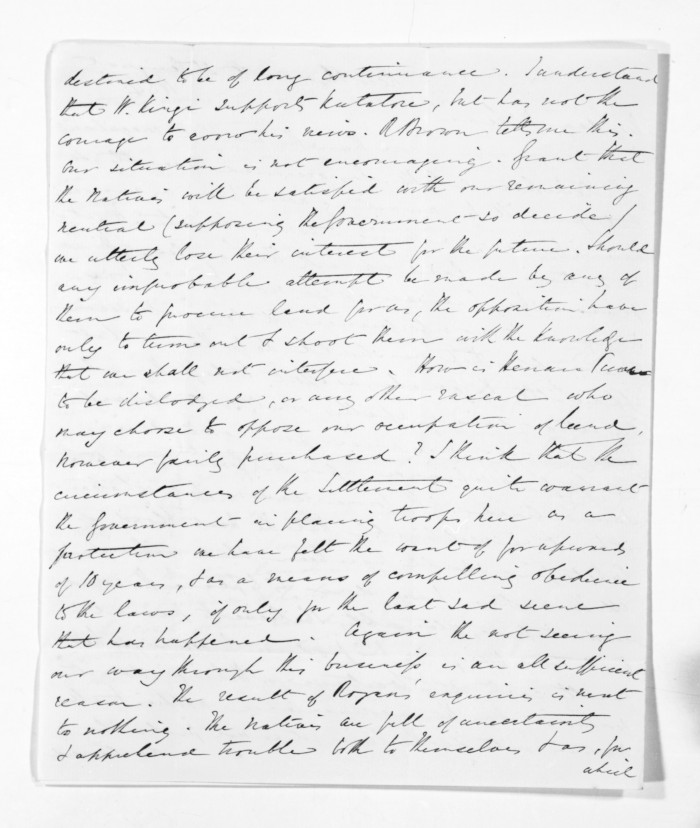 destined to be of long continuance. I understand
that W. Kingi supports Katatore, but has not the
courage to avow his views. R Brown tells me this.
Our situation is not encouraging. Grant that
the Natives will be satisfied with our remaining
neutral (supposing the Government so decide)
we utterly lose their interest for the future. Should
any improbable attempt be made by any of
them to procure land for us, the opposition have
only to turn out & shoot them with the knowledge
that we shall not interfere. How is
to be dislodged, or any other rascal who
may choose to oppose our occupation of land,
however fairly purchased? I think that the
circumstances of the Settlement quite warrant
the Government in placing troops here as a
protection we have felt the want of for upwards
of 10 years, & as a means of compelling obedience
to the laws, if only for the last sad scene
that has happened. Again the not seeing
our way through this business is an all sufficient
reason. The result of Rogan's enquiries is next
to nothing. The Natives are full of uncertainty
& apprehend trouble both to themselves & us, for